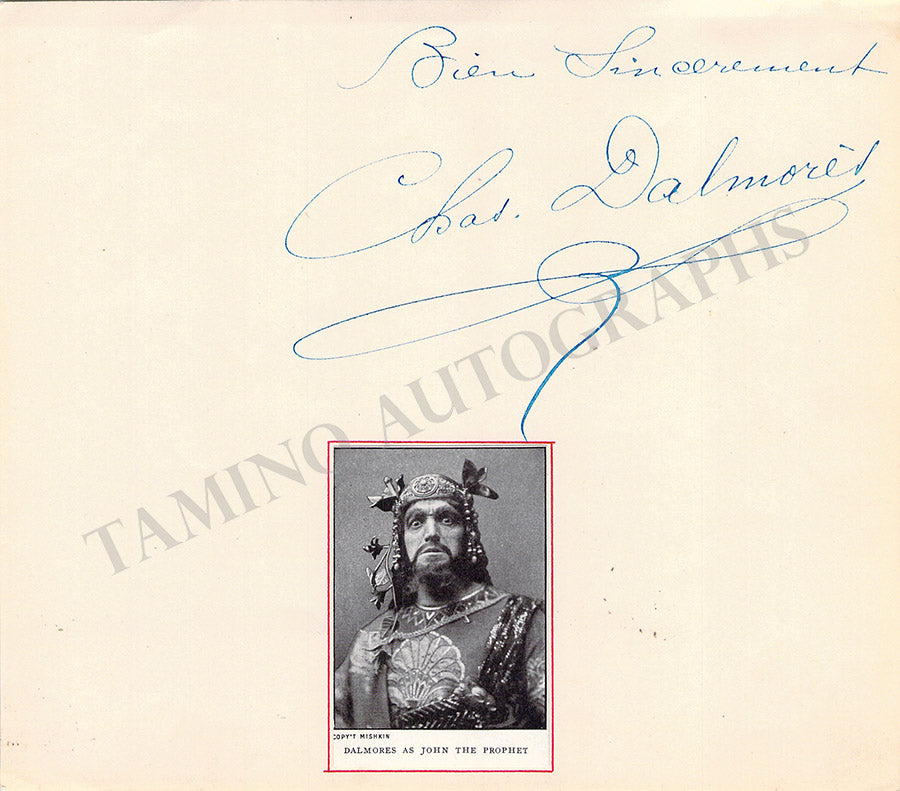 Bien Sincerement
Chas. Dalmorès
TAMINO AUTOGRAPHS
COPY'T MISHKIN
DALMORES AS JOHN THE PROPHET